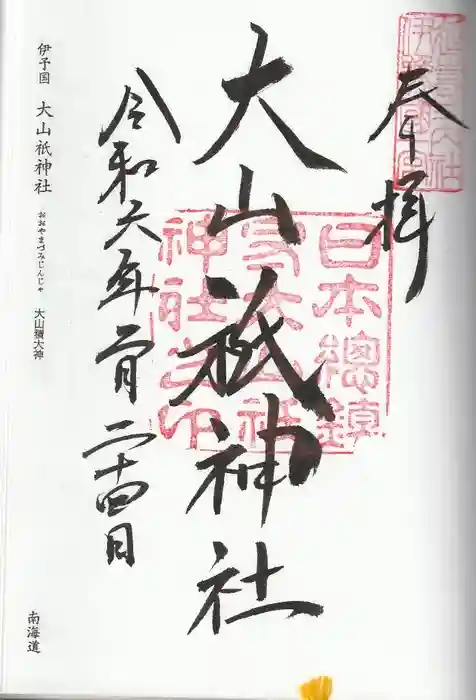 奉拝
大山祇神社
日本總鎮
守大山祇
神社之印
令和六年二月二十四日
伊予国 大山祇神社 おおやまづみじんじゃ 大山積大神
南海道